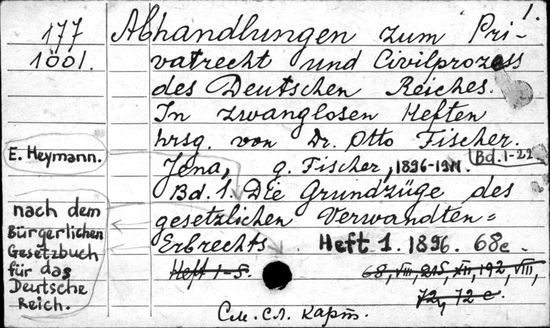 1.
177
1001.
Abhandlungen zum Pri-
vatrecht und Civilprozess
des Deutschen Reiches.
In zwanglosen Heften
hrsg. von Dr. Otto Fischer.
E. Heymann.
Jena, G. Fischer, 1896-1911.
Bd. 1-22
Bd. 1. Die Grundzüge des
gesetzlichen Verwandten=
Erbrechts
nach dem
Bürgerlichen
Gesetzbuch
für das
Deutsche
Reich.
Heft 1. 1896. 68 c.
Heft 1-5.
68, VIII, 215, XII, 192, VIII,
72, 72 c.
См. сл. карт.